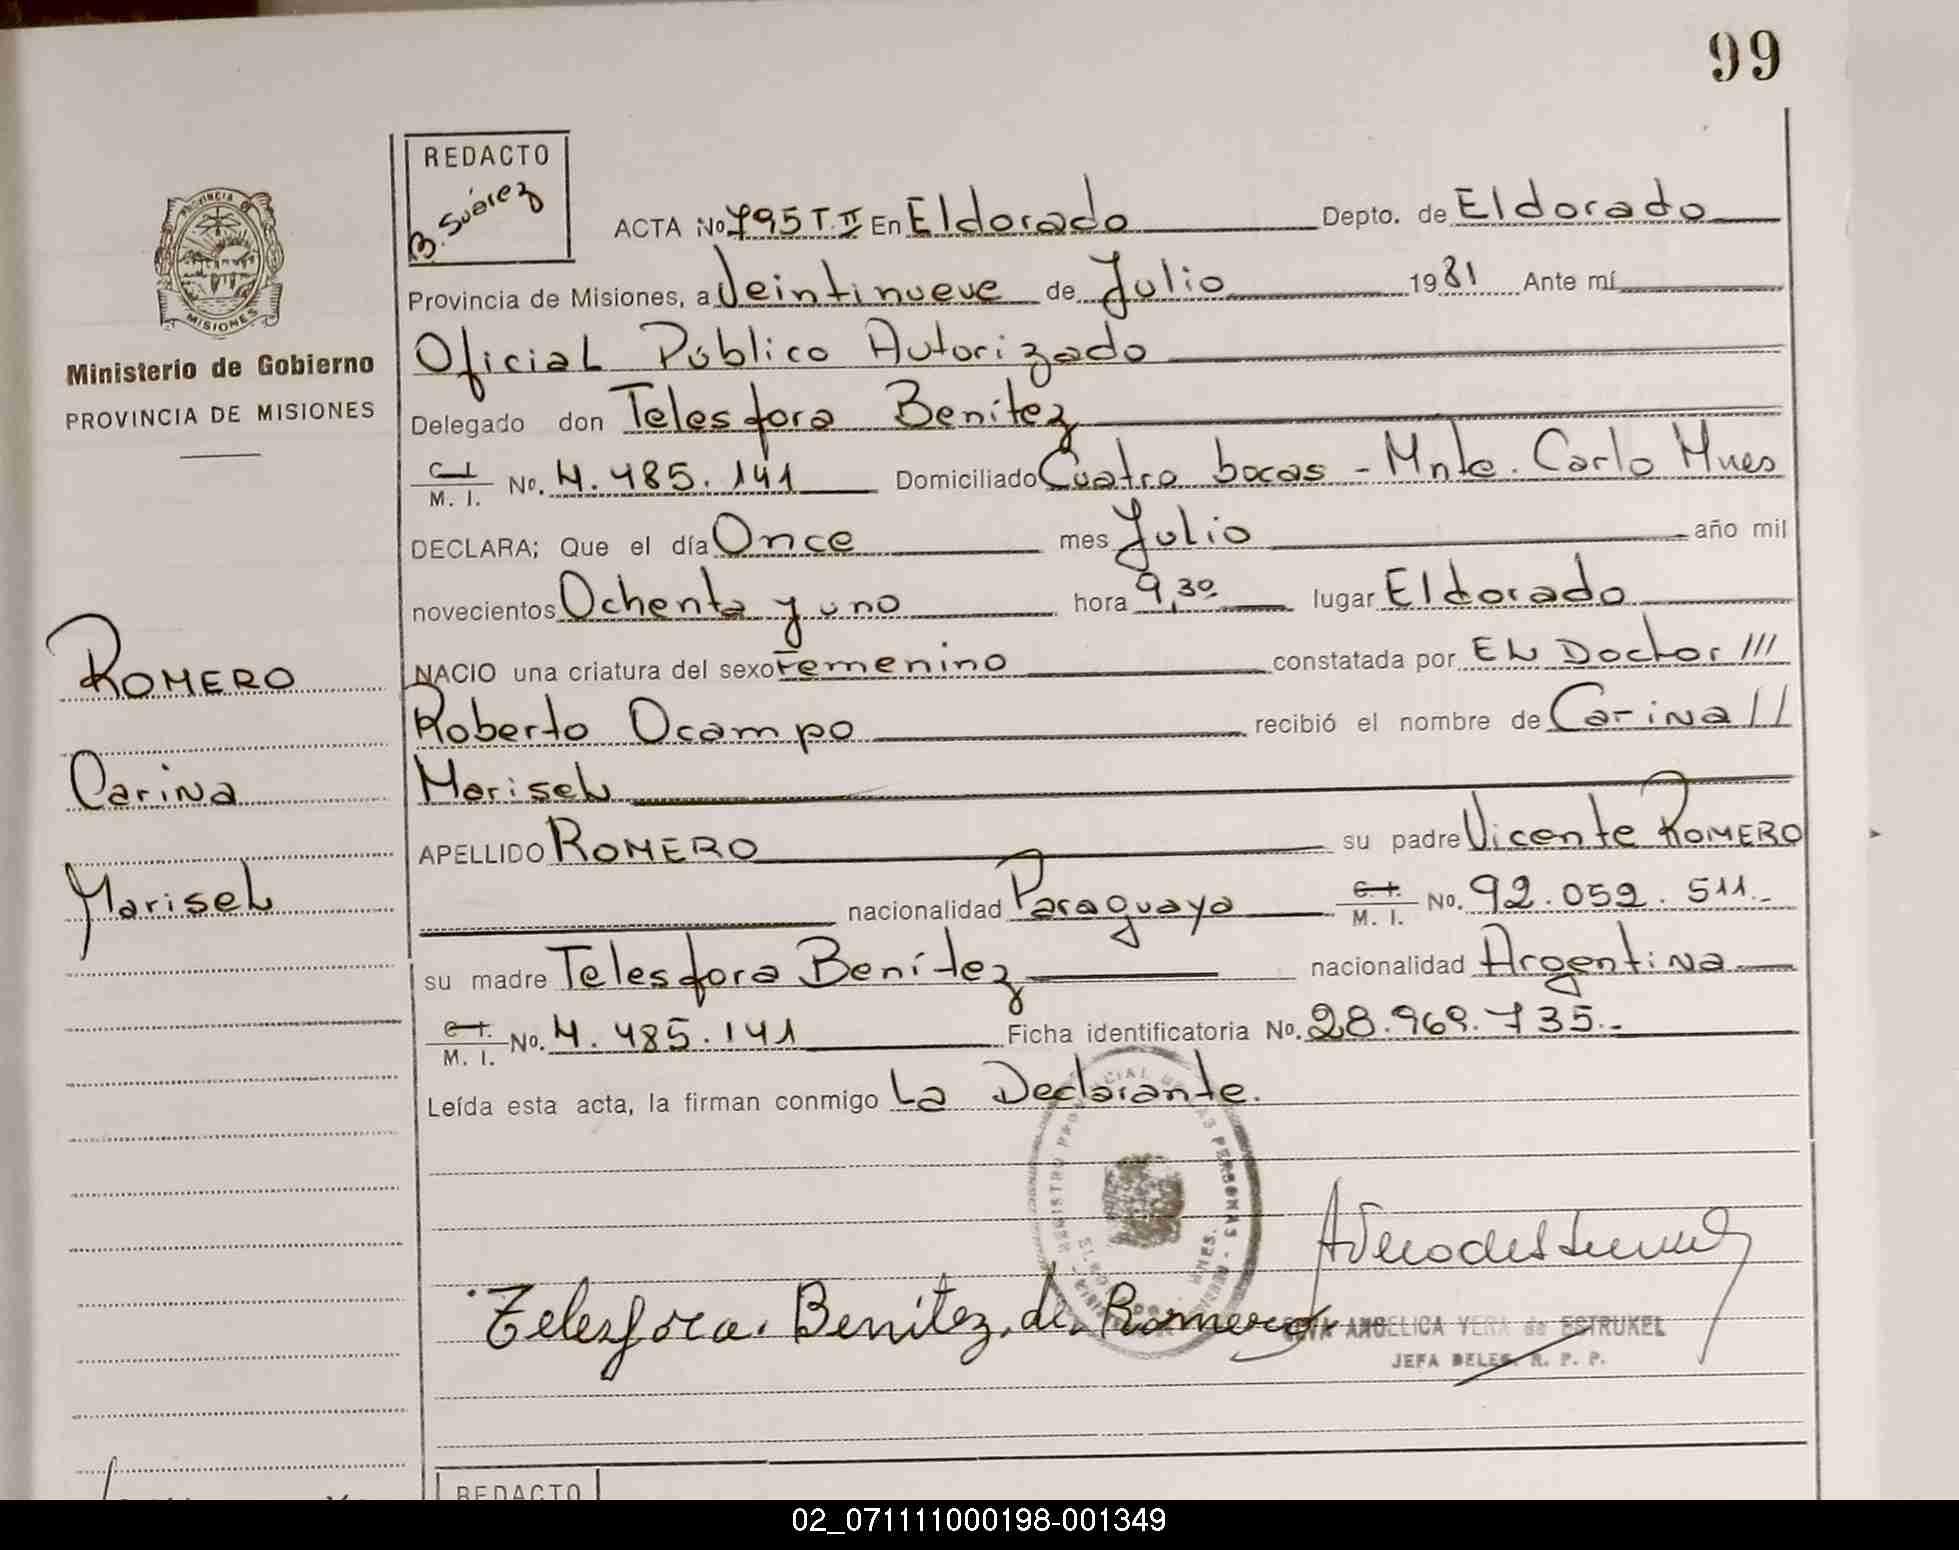 99
REDACTO
B. Suárez
PROVINCIA DE
MISIONES
Ministerio de Gobierno
PROVINCIA DE MISIONES
ACTA No 795 T. II En Eldorado Depto. de Eldorado
Provincia de Misiones, a Veintinueve de Julio 1981 Ante mí
Oficial Público Autorizado
Delegado don Telesfora Benítez
C. I. M. I. No. 4.485.141 Domiciliado Cuatro bocas - Mnte. Carlo Mues
DECLARA; Que el día Once mes Julio año mil
novecientos Ochenta y uno hora 9,30 lugar Eldorado
NACIO una criatura del sexo Femenino constatada por EL Doctor ///
Roberto Ocampo recibió el nombre de Carina //
Marisel
APELLIDO ROMERO su padre Vicente ROMERO
nacionalidad Paraguaya C. I. M. I. No. 92.052.511.-
su madre Telesfora Benítez nacionalidad Argentina
C. I. M. I. No. 4.485.141 Ficha identificatoria No. 28.969.735.-
Leída esta acta, la firman conmigo La Declarante.
ROMERO
Carina
Marisel
Telesfora. Benítez. de. Romero
ANGELICA VERA de ESTRUKEL
JEFA DELEG. R. P. P.
REDACTO
02_071111000198-001349